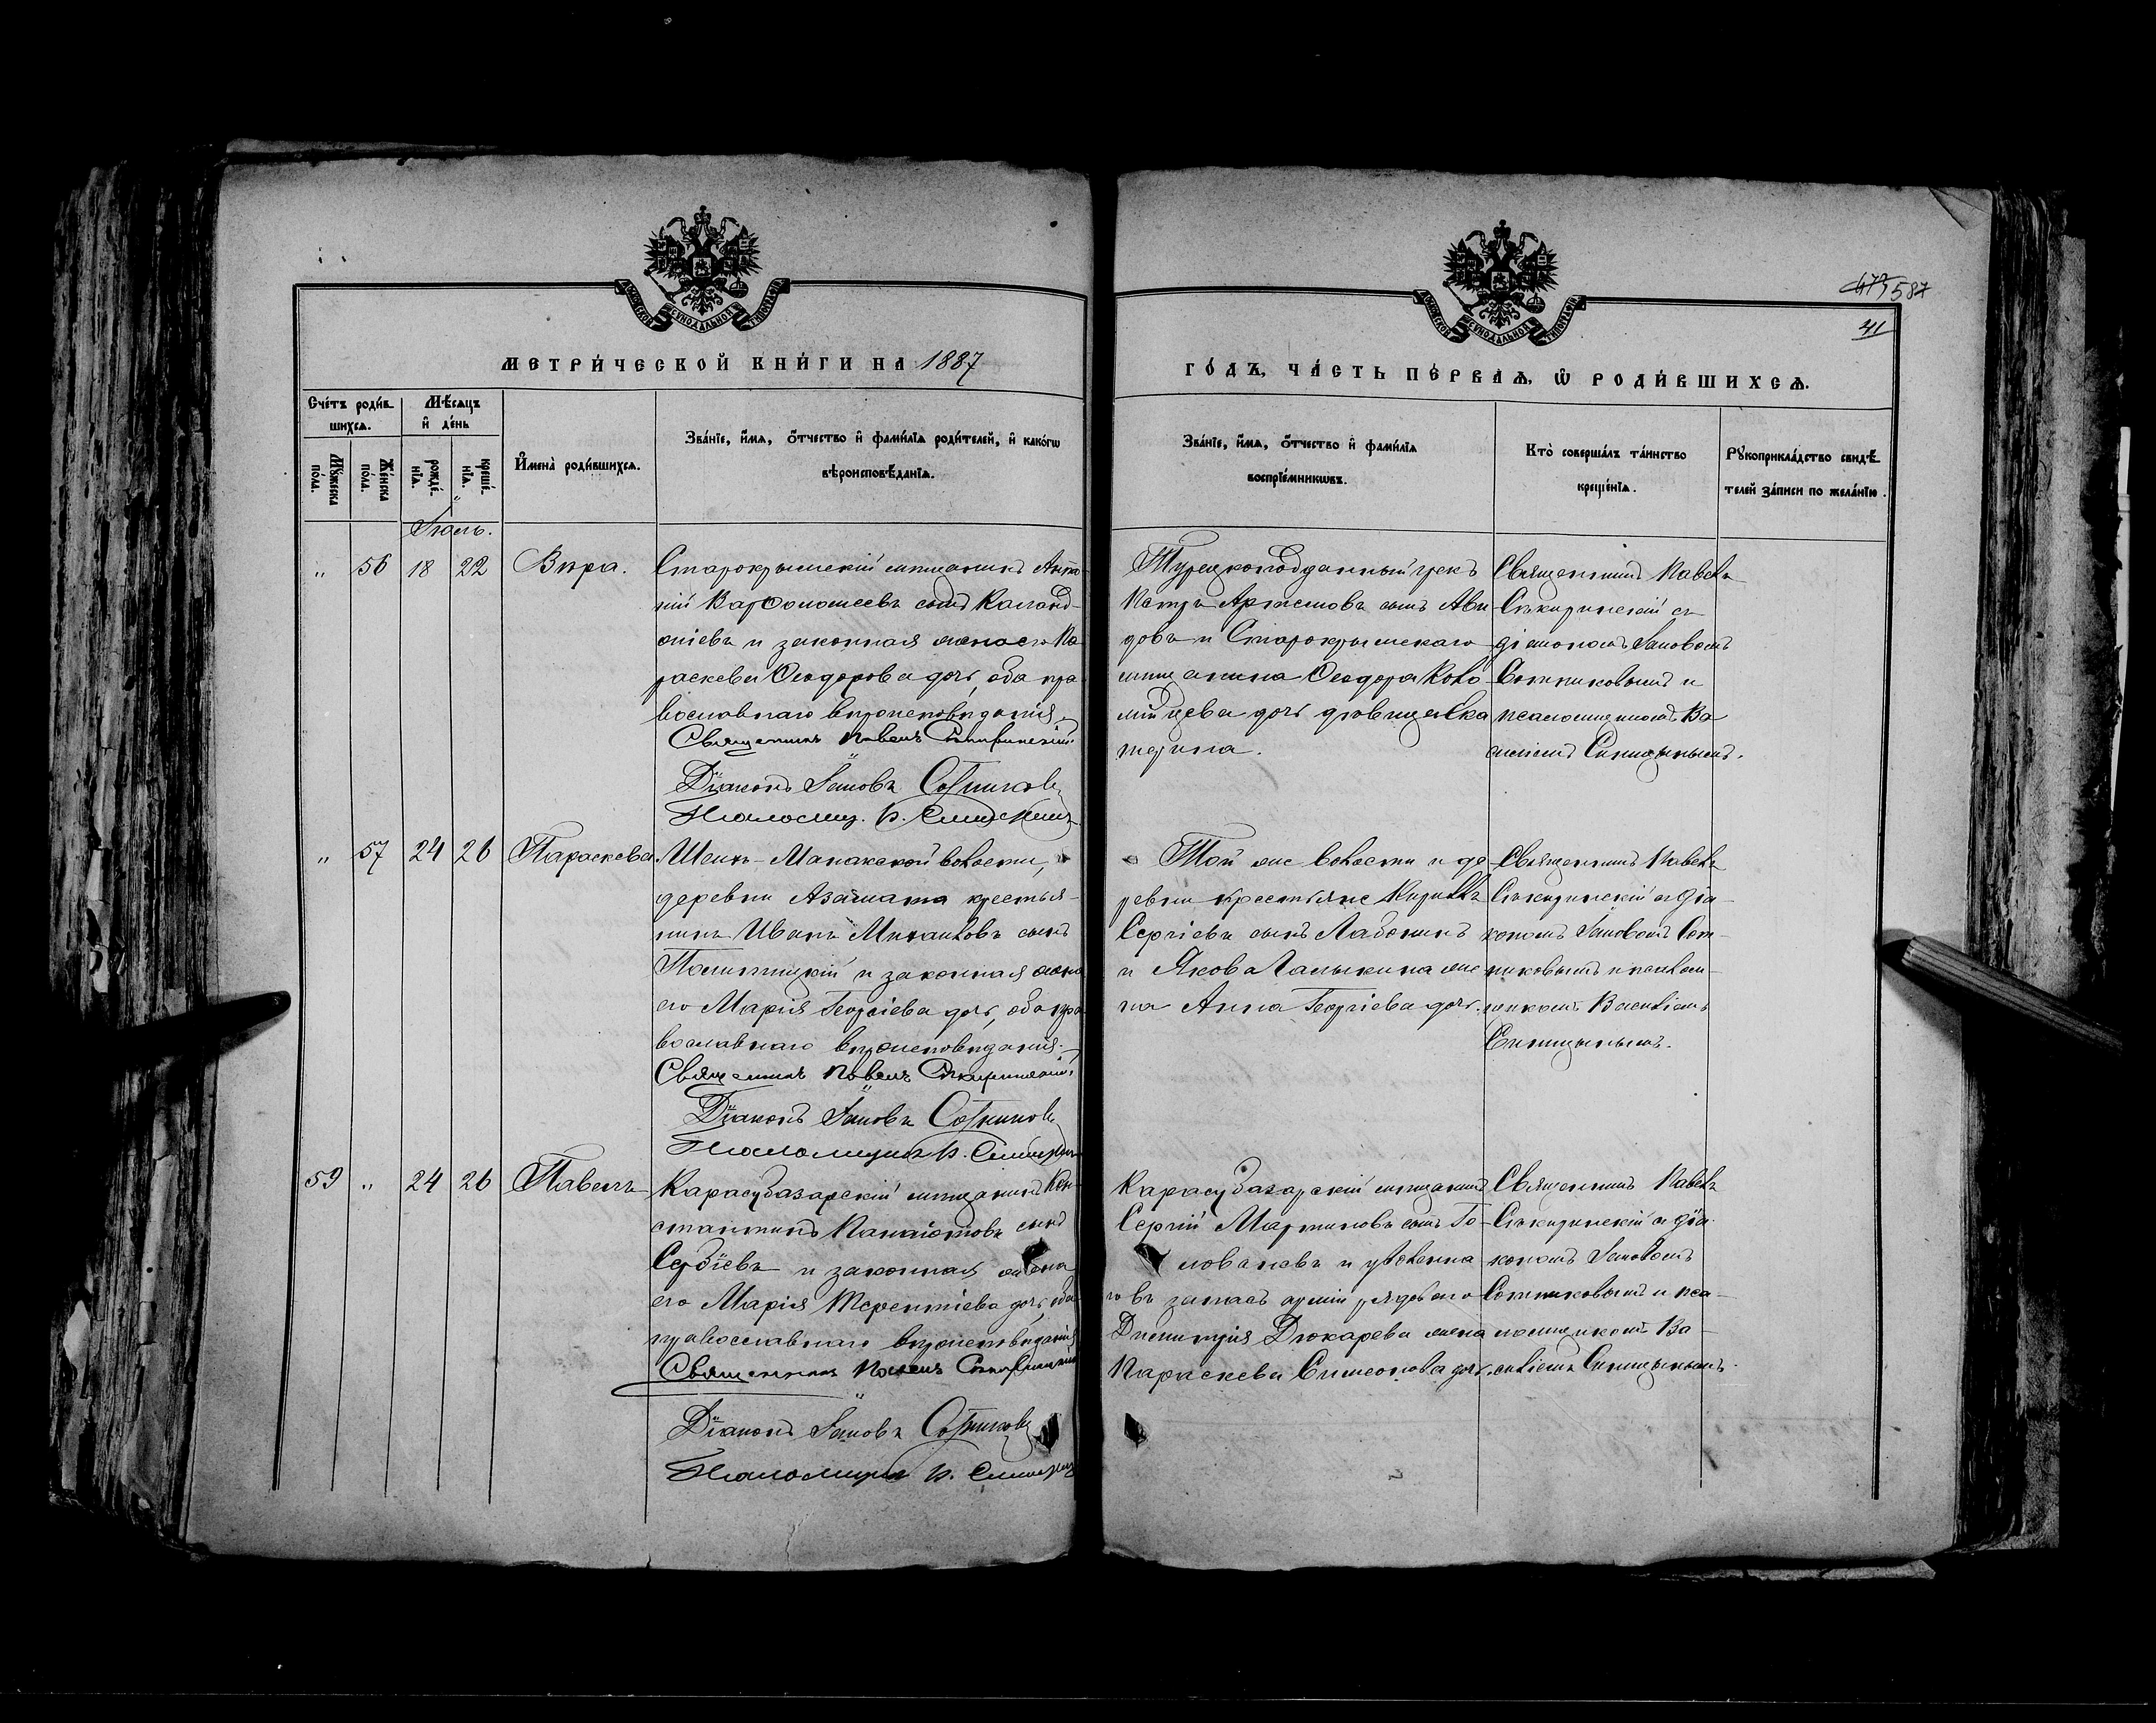 587
41
МЕТРИ́ЧЕСКОЙ КНИ́ГИ НА 1887
ГО́ДЪ, ЧА́СТЬ ПЕ́РВАѦ, Ѡ҆ РОДИ́ВШИХСѦ.
Сче́тъ роди́вшихсѧ.
Мꙋ́жеска по́ла.
Же́нска по́ла.
Мѣ́сѧцъ и҆ де́нь
рожде́нїѧ.
креще́нїѧ.
И҆мена̀ роди́вшихсѧ.
Зва́нїе, и҆́мѧ, ѻ҆́тчество и҆ фами́лїѧ роди́телей, и҆ како́гѡ
вѣроисповѣ́данїѧ.
Зва́нїе, и҆́мѧ, ѻ҆́тчество и҆ фами́лїѧ
воспрїе́мникѡвъ.
Кто̀ соверша́лъ та́инство
креще́нїѧ.
Рꙋкоприкла́дство свидѣ́телей за́писи по жела́нїю.
Іюль.
" 56 18 22 Вѣра.
Старокрымскій мѣщанинъ Анто-
ній Варѳоломеевъ сынъ
и законная жена его Па
раскева Ѳеодорова дочь, оба пра
вославнаго вѣроисповѣданія
Священникъ Павелъ Сѣкиринскій
Діаконъ Іаковъ Сотниковъ
Псаломщ. В. Синицынъ
Турецкоподданный грекъ
Петръ Артемовъ сынъ Ави-
довъ и Старокрымскаго
мѣщанина Ѳеодора
дочь дѣвица Ека
терина.
Священникъ Павелъ
Сѣкиринскій съ
діакономъ Іаковомъ
Сотниковымъ и
псаломщикомъ Ва
силіемъ Синицынымъ.
" 57 24 26 Параскева.
Шейхъ-Манакской волости,
деревни Азамата крестья-
нинъ Иванъ Михаиловъ сынъ
и законная жена
его Марія Георгіева дочь, оба пра
вославнаго вѣроисповѣданія.
Священникъ Павелъ Сѣкиринскій
Діаконъ Іаковъ Сотниковъ
Псаломщикъ В. Синицынъ
Той же волости и де-
ревни крестьяне Кириллъ
Сергіевъ сынъ Лабонинъ
и Якова Галыкина же
на Анна Георгіева дочь.
Священникъ Павелъ
Сѣкиринскій съ діа-
кономъ Іаковомъ Сот-
никовымъ и псалом-
щикомъ Василіемъ
Синицынымъ.
59 " 24 26 Павелъ
Карасубазарскій мѣщанинъ Кон-
стантинъ Панаіотовъ сынъ
Сербіевъ и законная жена
его Марія Терентіева дочь, оба
православнаго вѣроисповѣданія
Священникъ Павелъ Сѣкиринскій
Діаконъ Іаковъ Сотниковъ
Псаломщикъ В. Синицынъ
Карасубазарскій мѣщанинъ
Сергій Мартиновъ сынъ Го-
ловачевъ и уволенна
го въ запасъ арміи рядоваго
Димитрія Дюкарева жена
Параскева Симеонова дочь.
Священникъ Павелъ
Сѣкиринскій съ діа-
кономъ Іаковомъ
Сотниковымъ и пса-
ломщикомъ Ва-
силіемъ Синицынымъ.